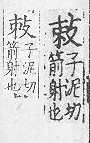 子泥切
箭射也
子泥切
箭射也